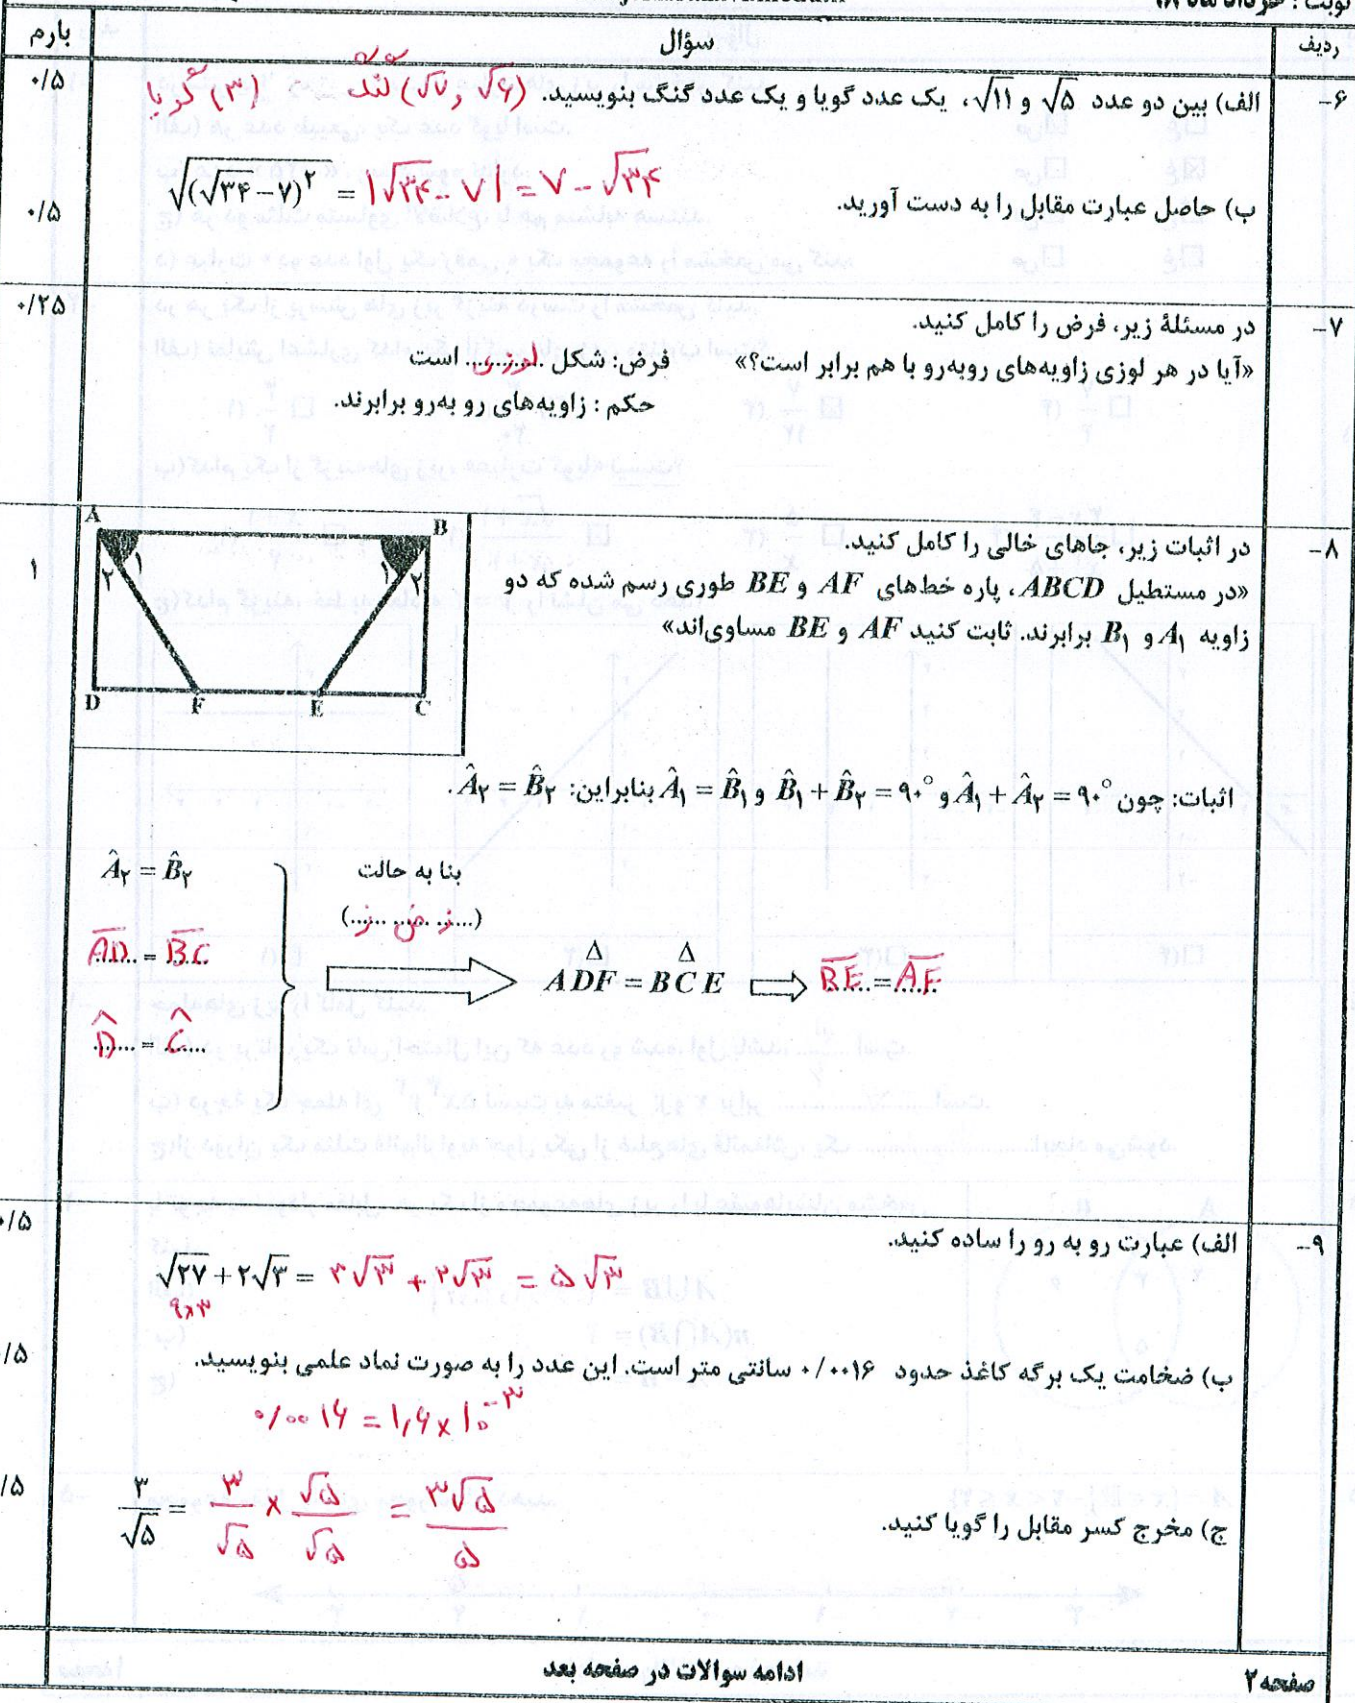 نوبت : خرداد ماه ۹۸
ردیف سؤال بارم
۶- الف) بین دو عدد √۵ و √۱۱، یک عدد گویا و یک عدد گنگ بنویسید. (√۷ و √۶) گنگ (۳) گویا ۰/۵
ب) حاصل عبارت مقابل را به دست آورید. √(√۳۴-۷)^۲ = |√۳۴ - ۷| = ۷ - √۳۴ ۰/۵
۷- در مسئلهٔ زیر، فرض را کامل کنید. ۰/۲۵
«آیا در هر لوزی زاویه‌های روبه‌رو با هم برابر است؟» فرض: شکل ..لوزی.. است
حکم : زاویه‌های رو به‌رو برابرند.
۸- در اثبات زیر، جاهای خالی را کامل کنید. ۱
«در مستطیل ABCD، پاره خط‌های AF و BE طوری رسم شده که دو
زاویه A۱ و B۱ برابرند. ثابت کنید AF و BE مساوی‌اند»
A B
۲ ۱ ۱ ۲
D F E C
اثبات: چون Â۱ + Â۲ = ۹۰° و B̂۱ + B̂۲ = ۹۰° و Â۱ = B̂۱ بنابراین: Â۲ = B̂۲ .
Â۲ = B̂۲ بنا به حالت
(...ز ض ز...)
AD = BC
Δ Δ
ADF = BCE ⇒ BE = AF
D̂ = Ĉ
۹- الف) عبارت رو به رو را ساده کنید. ۰/۵
√۲۷ + ۲√۳ = ۳√۳ + ۲√۳ = ۵√۳
۹×۳
ب) ضخامت یک برگه کاغذ حدود ۰/۰۰۱۶ سانتی متر است. این عدد را به صورت نماد علمی بنویسید. /۵
۰/۰۰۱۶ = ۱٫۶ × ۱۰^-۳
ج) مخرج کسر مقابل را گویا کنید. ۳/√۵ = ۳/√۵ × √۵/√۵ = ۳√۵/۵ /۵
صفحه ۲ ادامه سوالات در صفحه بعد